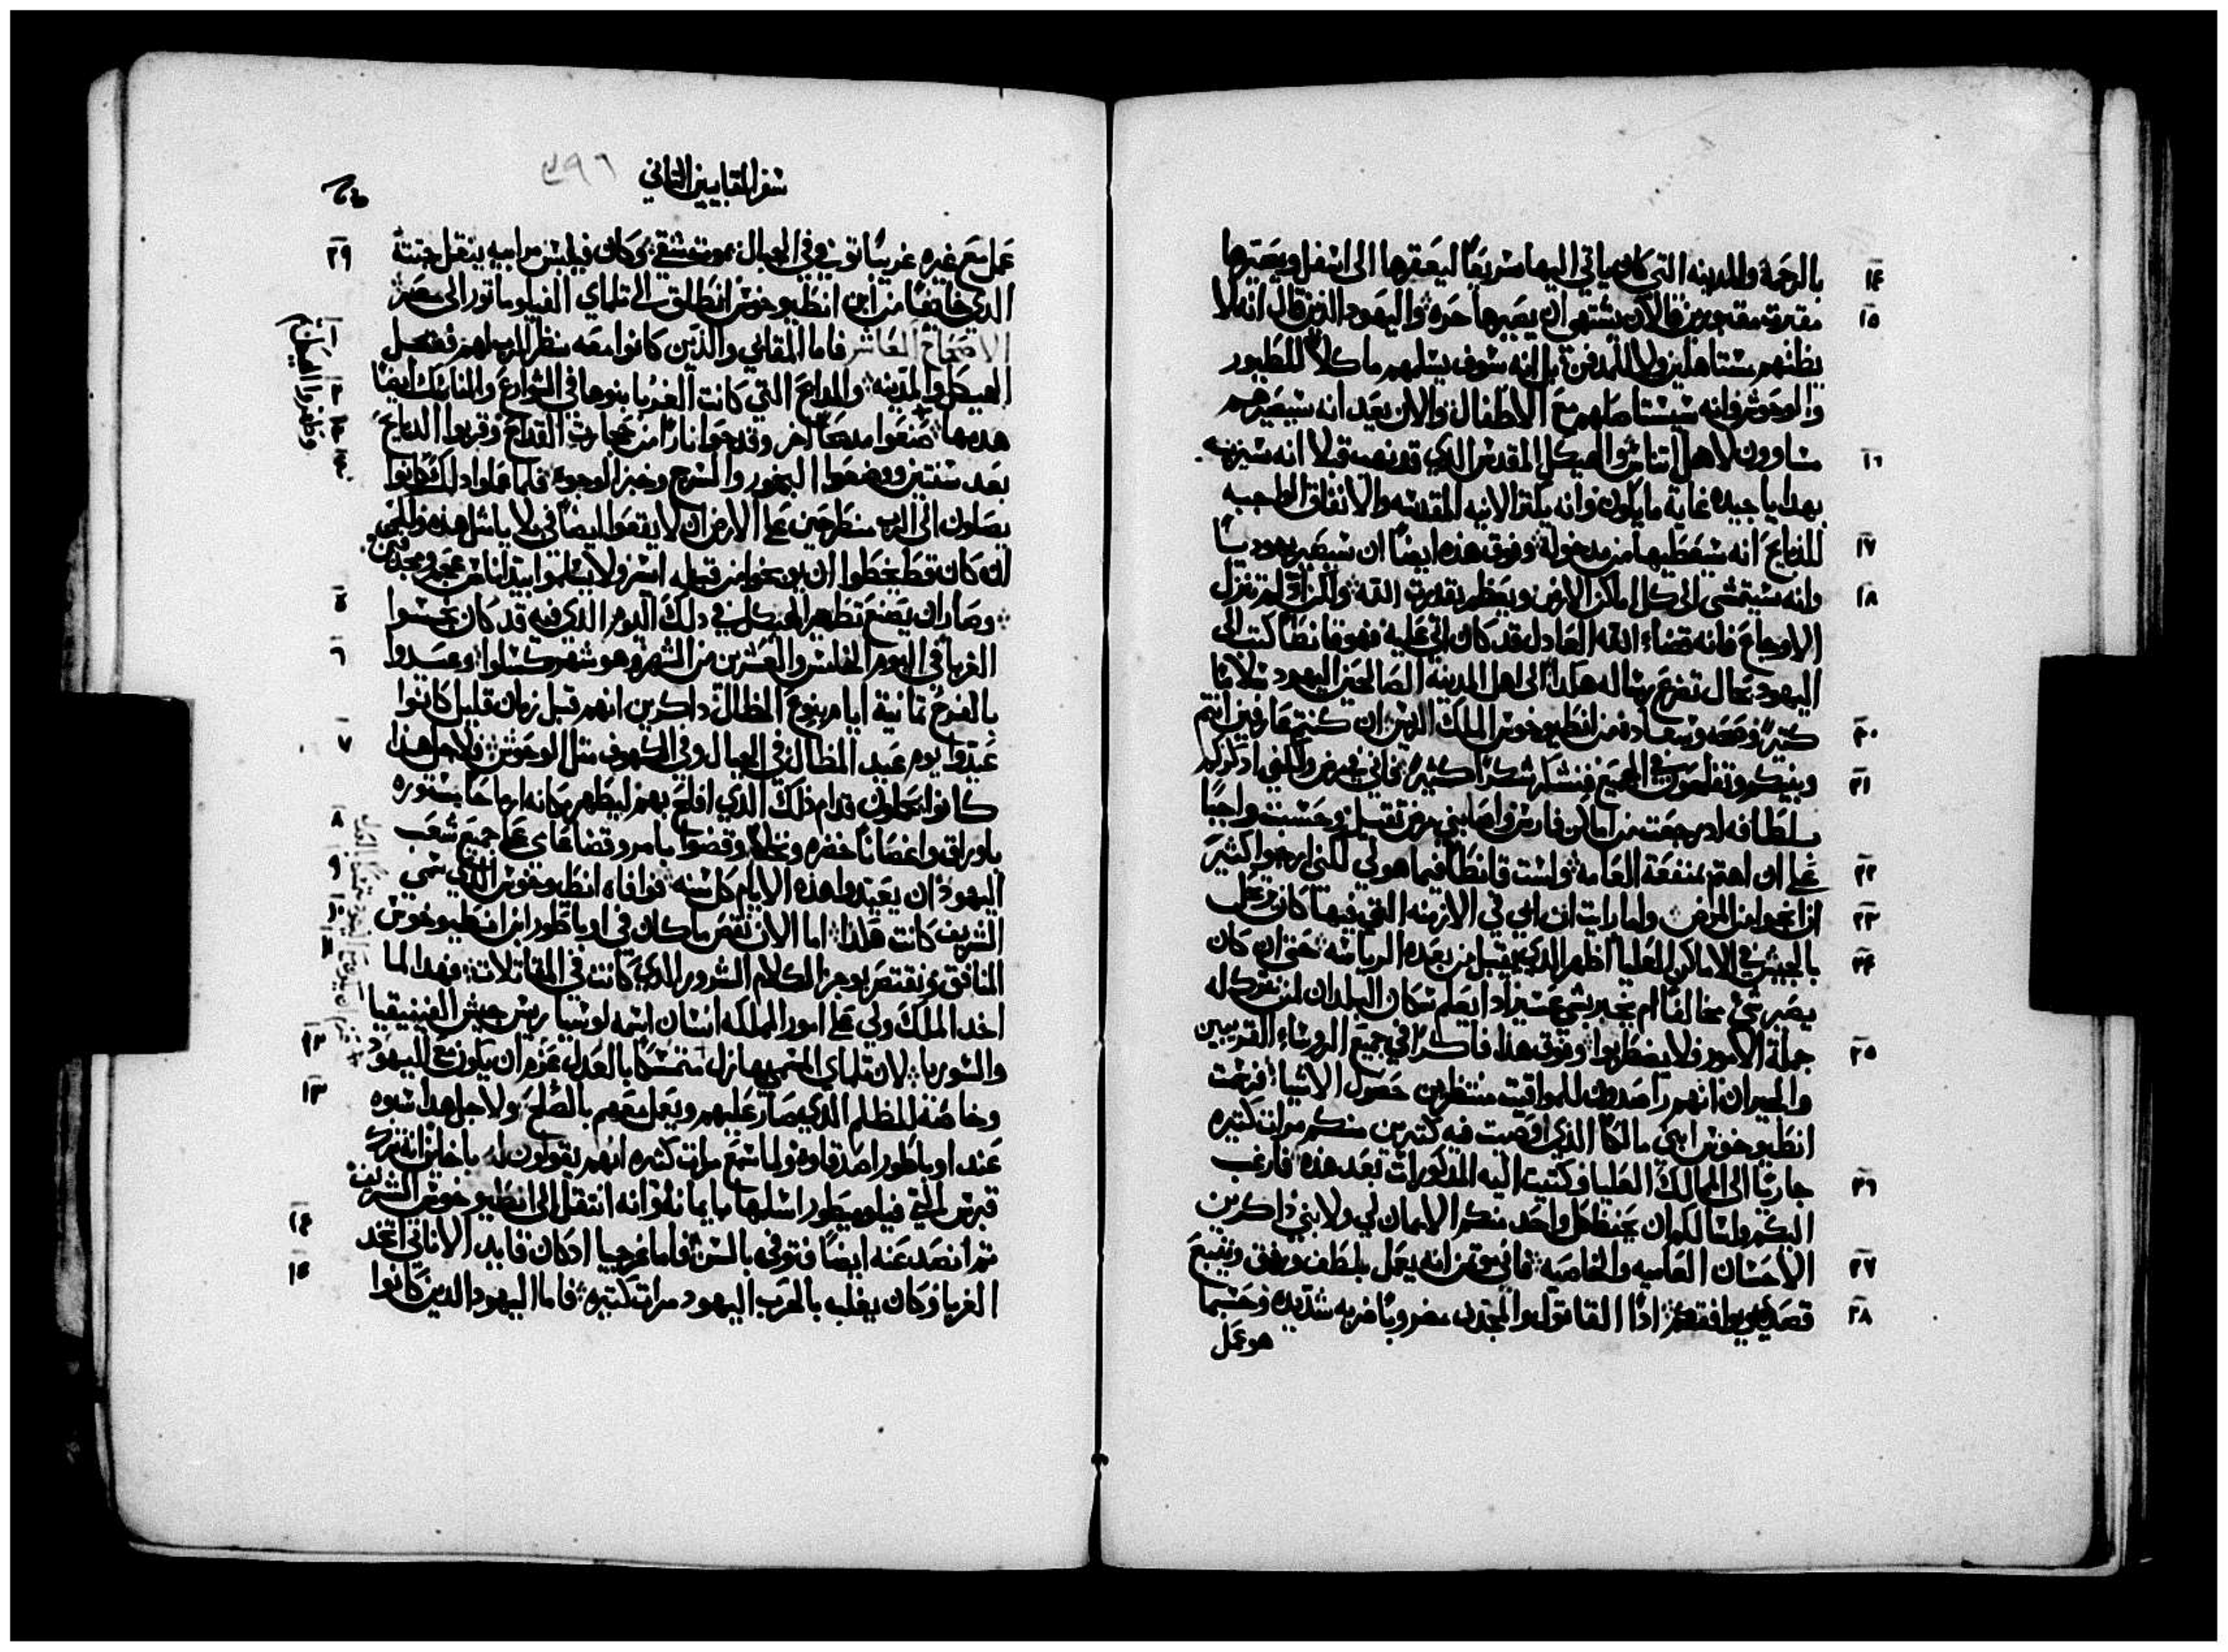 بالرحمة والمدينه التي كان ياتي اليها سريعاً ليعقرها الى اسفل ويصيرها
مقبرة مقبورين فالان يشتهي ان يصيرها حره واليهود الذين قال انه لا
يظنهم مستاهلين ولا للمدفن بل انه سوف يسلمهم ماكلاً للطيور
والوحوش وانه سيستاصلهم مع الاطفال والان يعد انه سيصيرهم
مساوون لاهل اتناس والهيكل المقدس الذي قد نهب قبلا انه سيزينه
بهدايا جيده غاية ما يكون وانه يكتر الانيه المقدسه والانفاق الواجبه
للدبايح انه سيعطيها من مدخوله وفوق هذه ايضاً ان سيصير يهودياً
وانه سيتمشى الى كل اماكن الارض ويعظم بقدرت الله ولكن اذ لم تنزل
الاوجاع فانه قضاء الله العادل قد كان اتى عليه فهو قانطاً كتب الى
اليهود بحال تضرع رساله هكذا الى اهل المدينة الصالحين اليهود سلاماً
كثيراً وصحه وسعاده من انطيوخوس الملك الريس ان كنتم عارفين انتم
وبنيكم وتفلحون في الجميع فنشكر شكراً كثيراً فاني في مرض ولكني اذكركم
بلطافه اذ رجعت من اماكن فارس واصابني مرض ثقيل وحسبت واجباً
علي ان اهتم بمنفعة العامه ولست قانطاً فيما هو لي لكني ارجوا كثير
ان انجوا من المرض ولما رايت ان ابي في الازمنه التي فيها كان يرحل
بالجيش في الاماكن العليا اظهر الذي يقبل من بعده الرياسه حتى ان كان
يصير شي مخالفاً ام يخبر بشي عسير اذا يعلم سكان البلدان لمن تترك له
جملة الامور فلا يضطربوا وفوق هذا فاكراً في جميع الروساء القريبين
والجيران انهم راصدون للمواقيت منتظرين حصول الاشياء فرسمت
انطيوخوس ابني مالكاً الذي اوصيت فيه كتيرين منكم مرات كتيره
جارياً الى الممالك العليا وكتبت اليه المذكورات بعد هذه فارغب
اليكم واسالكم ان يحفظ كل واحد منكم الايمان لي ولابني ذاكرين
الاحسان العاميه والخاصيه فاني موقن انه يعمل بلطف ورفق ويتبع
قصدي ويوافقكم اذاً القاتول والمجدف مضروباً ضربه شديده وحسبما
هو عمل
سفر المقابيين التاني
عمل مع غيره غريباً توفي في الجبال بموت شقي وكان فيلبس مرابيه ينقل جتته
الدي خايفاً من ابن انطيوخوس انطلق الى تلماي الفيلوماتور الى مصر
الاصحاح العاشر فاما المقابي والذين كانوا معه بنظر الرب لهم ففتحل
الهيكل والمدينه والمدابح التي كانت الغربا بنوها في الشوارع والمناسك ايضاً
هدمها صنعوا مدبحاً اخر وقدحوا ناراً من حجارة القداح وقربوا الدبايح
بعد سنتين ووضعوا البخور والسرج وخبز الوجوه فلما عملوا ذلك كانوا
يصلون الى الرب منطرحين على الارض ان لا يقعوا ايضاً في بلايا متل هذه ولكن
ان كان قط يخطوا ان يوبخوا من قبله اسر ولا يسلموا بيد اناس عجم ومجدفين
وصار ان يصنع تطهير الهيكل في ذلك اليوم الذي فيه قد كان نجسوا
الغربا في اليوم الخامس والعشرين من الشهر وهو شهر كسلوا وعيدوا
بالفرح تمانية ايام بنوع المظال ذاكرين انهم قبل زمان قليل كانوا
عيدوا يوم عيد المظال في الجبال وفي الكهوف متل الوحوش ولاجل هذا
كانوا يحملون قدام ذلك الذي افلح بهم ليطهر مكانه ارماحاً مستوره
باوراق واغصاناً خضره ونخلاً وقضوا بامر وقضا عاى على جميع شعب
اليهود ان يعيدوا هذه الايام كل سنه فوافاه انطيوخوس الذي سمي
الشريف كانت هكذا اما الان نقص ما كان في اوباطور ابن انطيوخوس
المنافق ونقتصر بوجز الكلام الشرور الذي كانت في المقاتلات فهذا لما
اخد الملك ولي على امور المملكه انسان اسمه لوسيا ريس جيش الفينيقيا
والسوريا لان تلماي المسمى مازل متمسكاً بالعدل عزم ان يكون مع اليهود
وخاصة للظلم الذي صار عليهم ويعمل معهم بالصلح ولاجل هذا شوه
عند اوباطور اصدقاوه ولما سمع مرات كتيره انهم يقولون له يا خاين انه ترك
قبرس التي فيلوميطور اسلمها بايمانه وانه انتقل الى انطيوخوس الشريف
تم انصد عنه ايضاً فتوفي بالسم فاما غرجيا اذ كان قايد الاناني اتخد
الغربا وكان يغلب بالحرب اليهود مرات كتيره فاما اليهود الدين كانوا